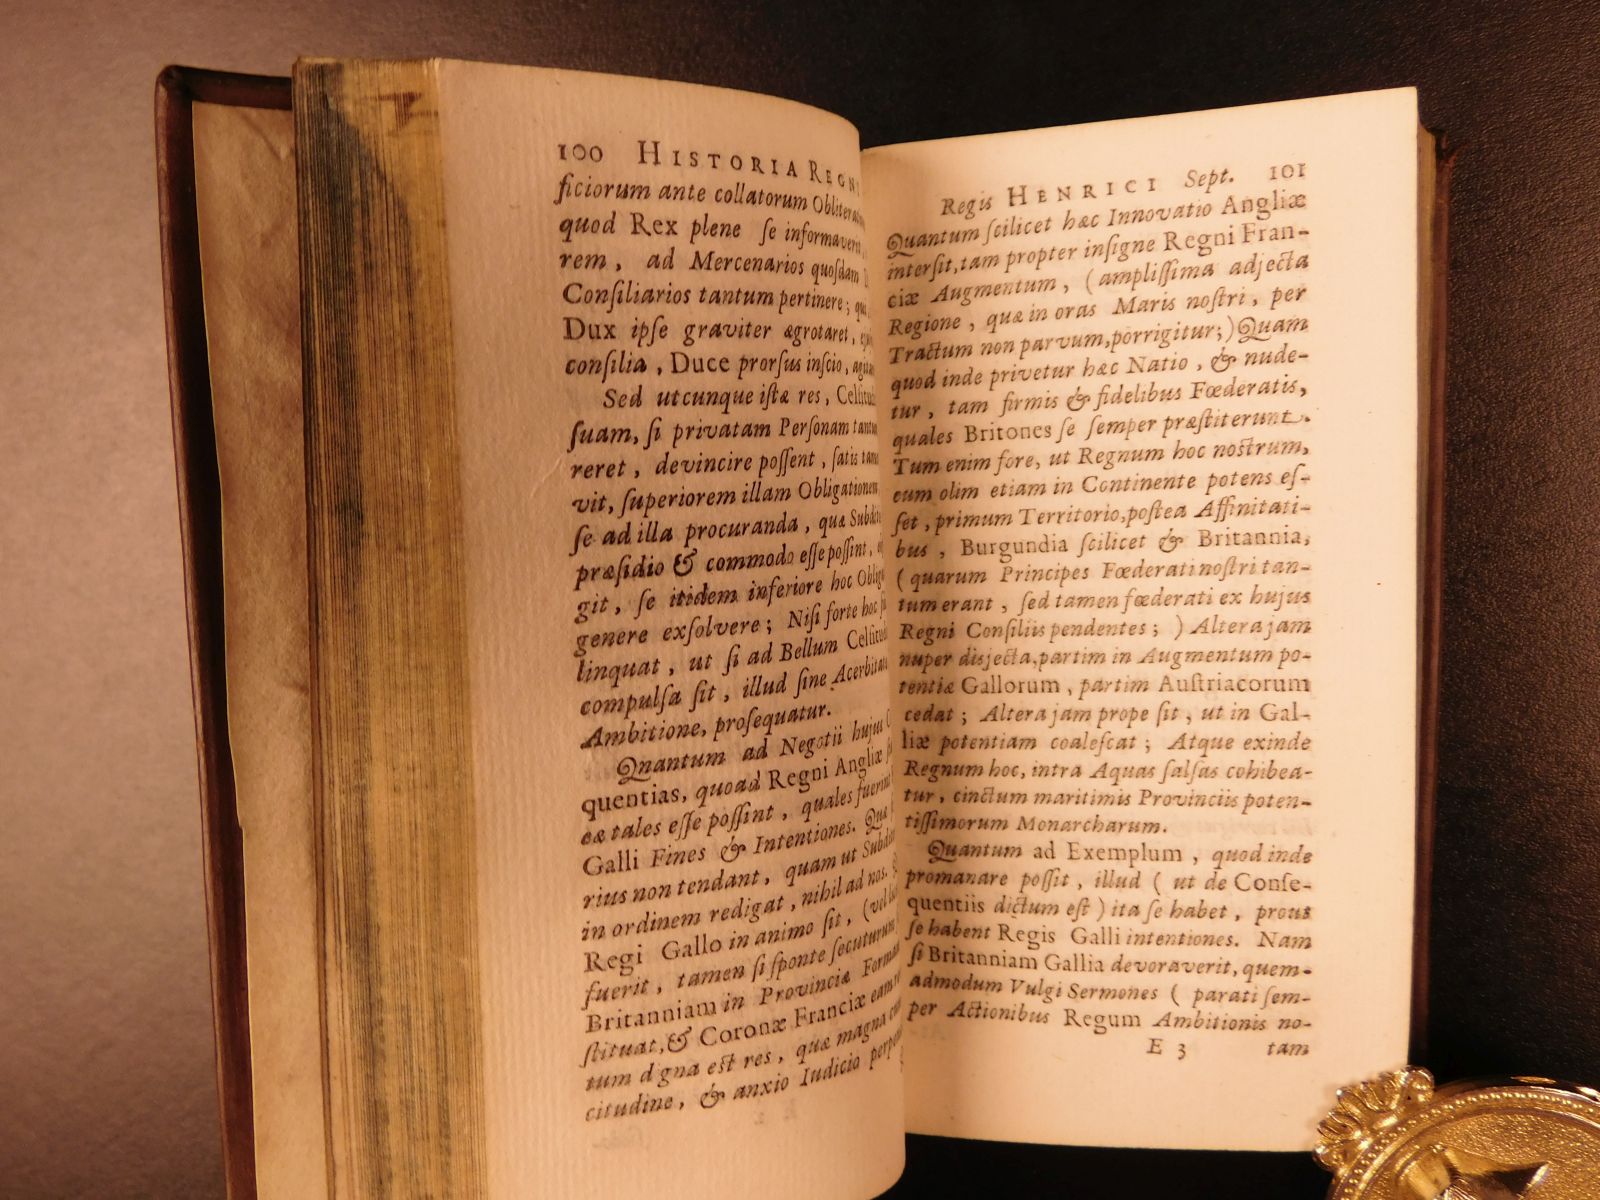 100 HISTORIA REGNI
ficiorum ante collatorum
quod Rex plene ſe informaverit
rem, ad Mercenarios quoſdam
Conſiliarios tantum pertinere;
Dux ipſe graviter ægrotaret,
conſilia, Duce prorſus inſcio,
Sed utcunque iſtæ res,
ſuam, ſi privatam Perſonam
reret, devincire poſſent, ſatis
vit, ſuperiorem illam
ſe ad illa procuranda, quæ
præſidio & commodo eſſe poſſint,
git, ſe itidem inferiore hoc
genere exſolvere; Niſi forte hoc
linquat, ut ſi ad Bellum
compulſa ſit, illud ſine
Ambitione, proſequatur.
Qnantum ad Negotii hujus
quentias, quoad Regni Angliæ
ea tales eſſe poſſint, quales
Galli Fines & Intentiones.
rius non tendant, quam ut
in ordinem redigat, nihil ad nos.
Regi Gallo in animo ſit, (vel
fuerit, tamen ſi ſponte ſecuturum
Britanniam in Provinciæ
ſtituat, & Coronæ Franciæ
tum digna eſt res, quæ magna
citudine, & anxio Iudicio
Regis HENRICI Sept. 101
Quantum ſcilicet hæc Innovatio Angliæ
interſit, tam propter inſigne Regni Fran-
ciæ Augmentum, (ampliſſima adjecta
Regione, quæ in oras Maris noſtri, per
Tractum non parvum, porrigitur;) Quam
quod inde privetur hæc Natio, & nude-
tur, tam firmis & fidelibus Fœderatis,
quales Britones ſe ſemper præſtiterunt.
Tum enim fore, ut Regnum hoc noſtrum,
cum olim etiam in Continente potens eſ-
ſet, primum Territorio, poſtea Affinitati-
bus, Burgundia ſcilicet & Britannia,
(quarum Principes Fœderati noſtri tan-
tum erant, ſed tamen fœderati ex hujus
Regni Conſiliis pendentes;) Altera jam
nuper disjecta, partim in Augmentum po-
tentiæ Gallorum, partim Auſtriacorum
cedat; Altera jam prope ſit, ut in Gal-
liæ potentiam coaleſcat; Atque exinde
Regnum hoc, intra Aquas ſalſas cohibea-
tur, cinctum maritimis Provinciis poten-
tiſſimorum Monarcharum.
Quantum ad Exemplum, quod inde
promanare poſſit, illud (ut de Conſe-
quentiis dictum eſt) ita ſe habet, prout
ſe habent Regis Galli intentiones. Nam
ſi Britanniam Gallia devoraverit, quem-
admodum Vulgi Sermones (parati ſem-
per Actionibus Regum Ambitionis no-
E 3 tam